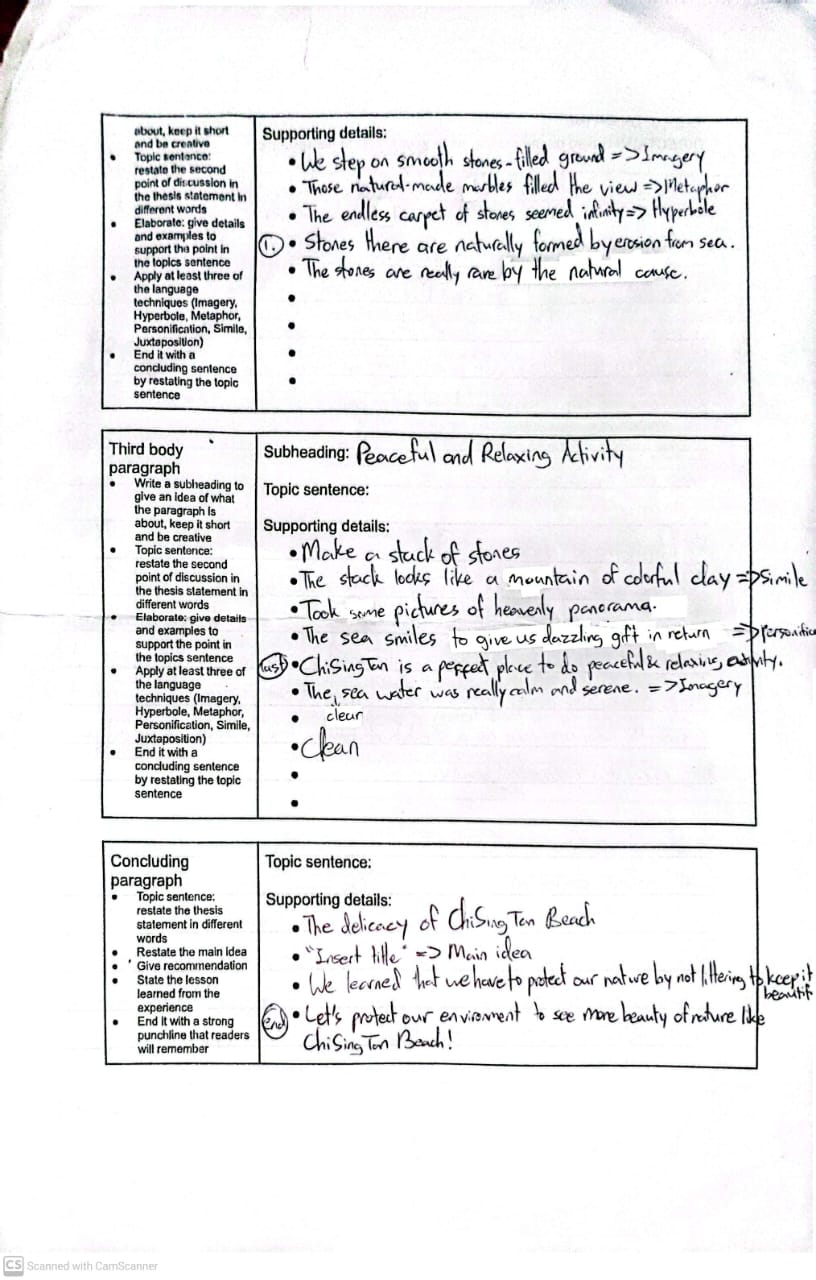 about, keep it short
and be creative
• Topic sentence:
restate the second
point of discussion in
the thesis statement in
different words
• Elaborate: give details
and examples to
support the point in
the topics sentence
• Apply at least three of
the language
techniques (Imagery,
Hyperbole, Metaphor,
Personification, Simile,
Juxtaposition)
• End it with a
concluding sentence
by restating the topic
sentence
Supporting details:
• We step on smooth stones-filled ground => Imagery
• Those natural-made marbles filled the view => Metaphor
• The endless carpet of stones seemed infinity => Hyperbole
1. • Stones there are naturally formed by erosion from sea.
• The stones are really rare by the natural cause.
•
•
•
•
Third body
paragraph
• Write a subheading to
give an idea of what
the paragraph is
about, keep it short
and be creative
• Topic sentence:
restate the second
point of discussion in
the thesis statement in
different words
• Elaborate: give details
and examples to
support the point in
the topics sentence
• Apply at least three of
the language
techniques (Imagery,
Hyperbole, Metaphor,
Personification, Simile,
Juxtaposition)
• End it with a
concluding sentence
by restating the topic
sentence
Subheading: Peaceful and Relaxing Activity
Topic sentence:
Supporting details:
• Make a stack of stones
• The stack looks like a mountain of colorful clay => Simile
• Took some pictures of heavenly panorama.
• The sea smiles to give us dazzling gift in return => Personific
last • ChiSingTan is a perfect place to do peaceful & relaxing activity.
• The sea water was really calm and serene. => Imagery
• clear
• Clean
•
•
Concluding
paragraph
• Topic sentence:
restate the thesis
statement in different
words
• Restate the main idea
• Give recommendation
• State the lesson
learned from the
experience
• End it with a strong
punchline that readers
will remember
Topic sentence:
Supporting details:
• The delicacy of ChiSing Tan Beach
• "Insert title" => Main idea
• We learned that we have to protect our nature by not littering to keep it
beautif
end • Let's protect our enviroment to see more beauty of nature like
ChiSing Tan Beach!
CS Scanned with CamScanner